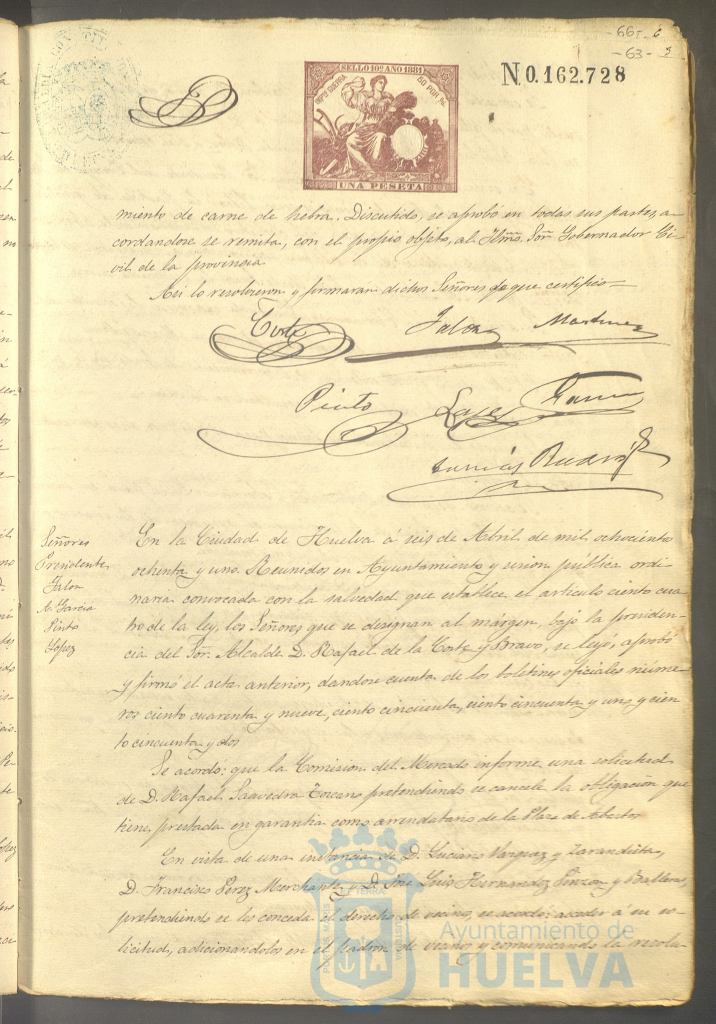 66r- 6
-63- 3
SELLO 10º AÑO 1881
IMPTO GUERRA 50 POR %
UNA PESETA
N0.162.728
miento de carne de hebra. Discutido, se aprobó en todas sus partes, a
cordandose se remita, con el propio objeto, al Iltmo. Sor. Gobernador Ci-
vil de la provincia
Asi lo resolvieron y firmaran dichos Señores de que certifico=
Corte Jalon Martinez
Pinto Lopez Garcia
Señores
Presidente
Jalon
A. Garcia
Pinto
Lopez
En la Ciudad de Huelva á seis de Abril de mil ochocientos
ochenta y uno. Reunidos en Ayuntamiento y sesion pública ordi-
naria convocada con la salvedad que establece el articulo ciento cua
tro de la ley, los Señores que se designan al margen, bajo la presiden-
cia del Sor. Alcalde D. Rafael de la Corte y Bravo, se leyó, aprobó
y firmó el acta anterior, dandose cuenta de los boletines oficiales núme-
ros ciento cuarenta y nueve, ciento cincuenta, ciento cincuenta y uno y cien
to cincuenta y dos
Se acordó: que la Comision del Mercado informe una solicitud
de D. Rafael Saavedra Toscano pretendiendo se cancele la obligación que
tiene prestada en garantia como arrendatario de la Plaza de Abastos
En vista de una instancia de D. Luciano Vazquez y Zarandieta,
D. Francisco Perez Merchante y D. José Luis Hernandez Pinzon y Ballesa,
pretendiendo se les conceda el derecho de vecino, se acordó: acceder á su so-
licitud, adicionándolos en el padrón de vecinos y comunicando la resolu-
Ayuntamiento de
HUELVA